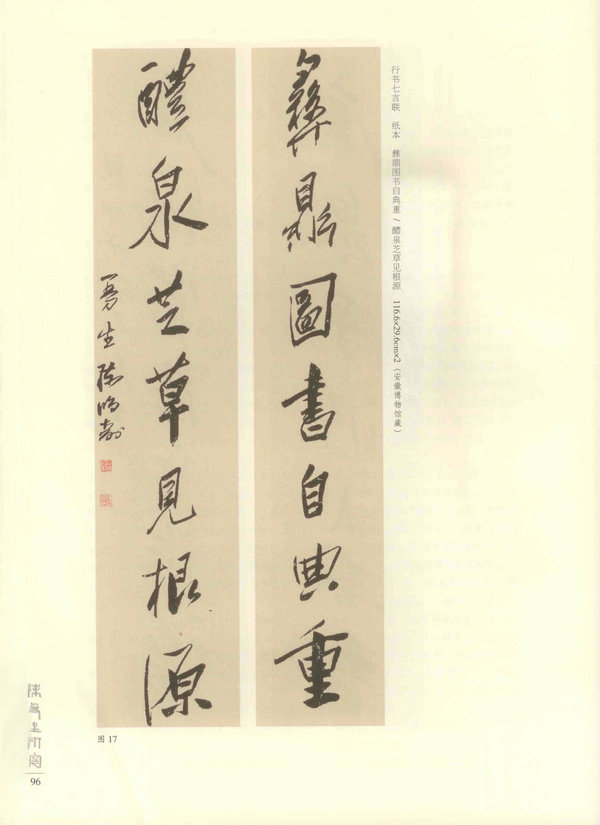 行书七言联 纸本 彝鼎图书自典重 / 醴泉芝草见根源 116.6×29.6cm×2（安徽博物馆藏）
彝鼎圖書自典重
醴泉芝草見根源
曼生陈鸿寿
图 17
96